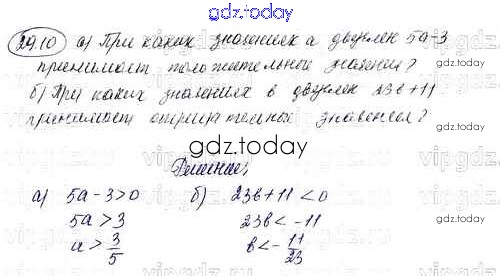 gdz.today
29.10 а) При каких значениях а двучлен 5а-3
принимает положительные значения?
б) При каких значениях в двучлен 23в+11
принимает отрицательные значения?
gdz.today
Решение:
а) 5а-3>0 б) 23в+11<0
5а>3 23в<-11
а>3/5 в<-11/23
gdz.today